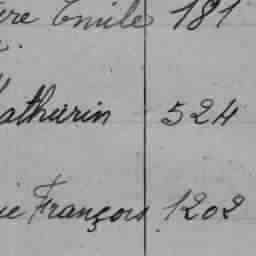 Emile 181
Mathurin 524
François 1202